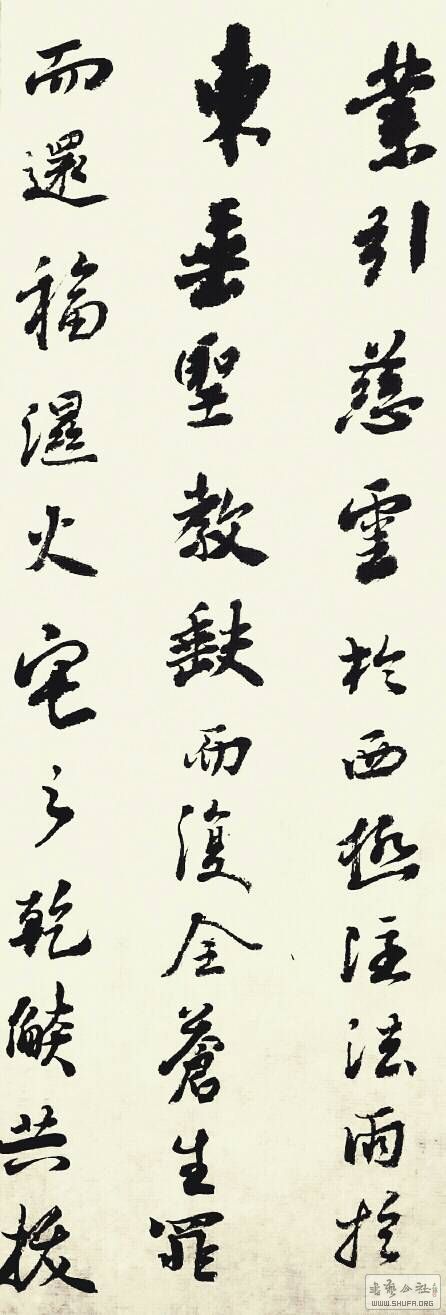 業引慈雲於西極注法雨於
東垂聖教缺而復全蒼生罪
而還福濕火宅之乾燄共拔
書藝公社
WWW.SHUFA.ORG